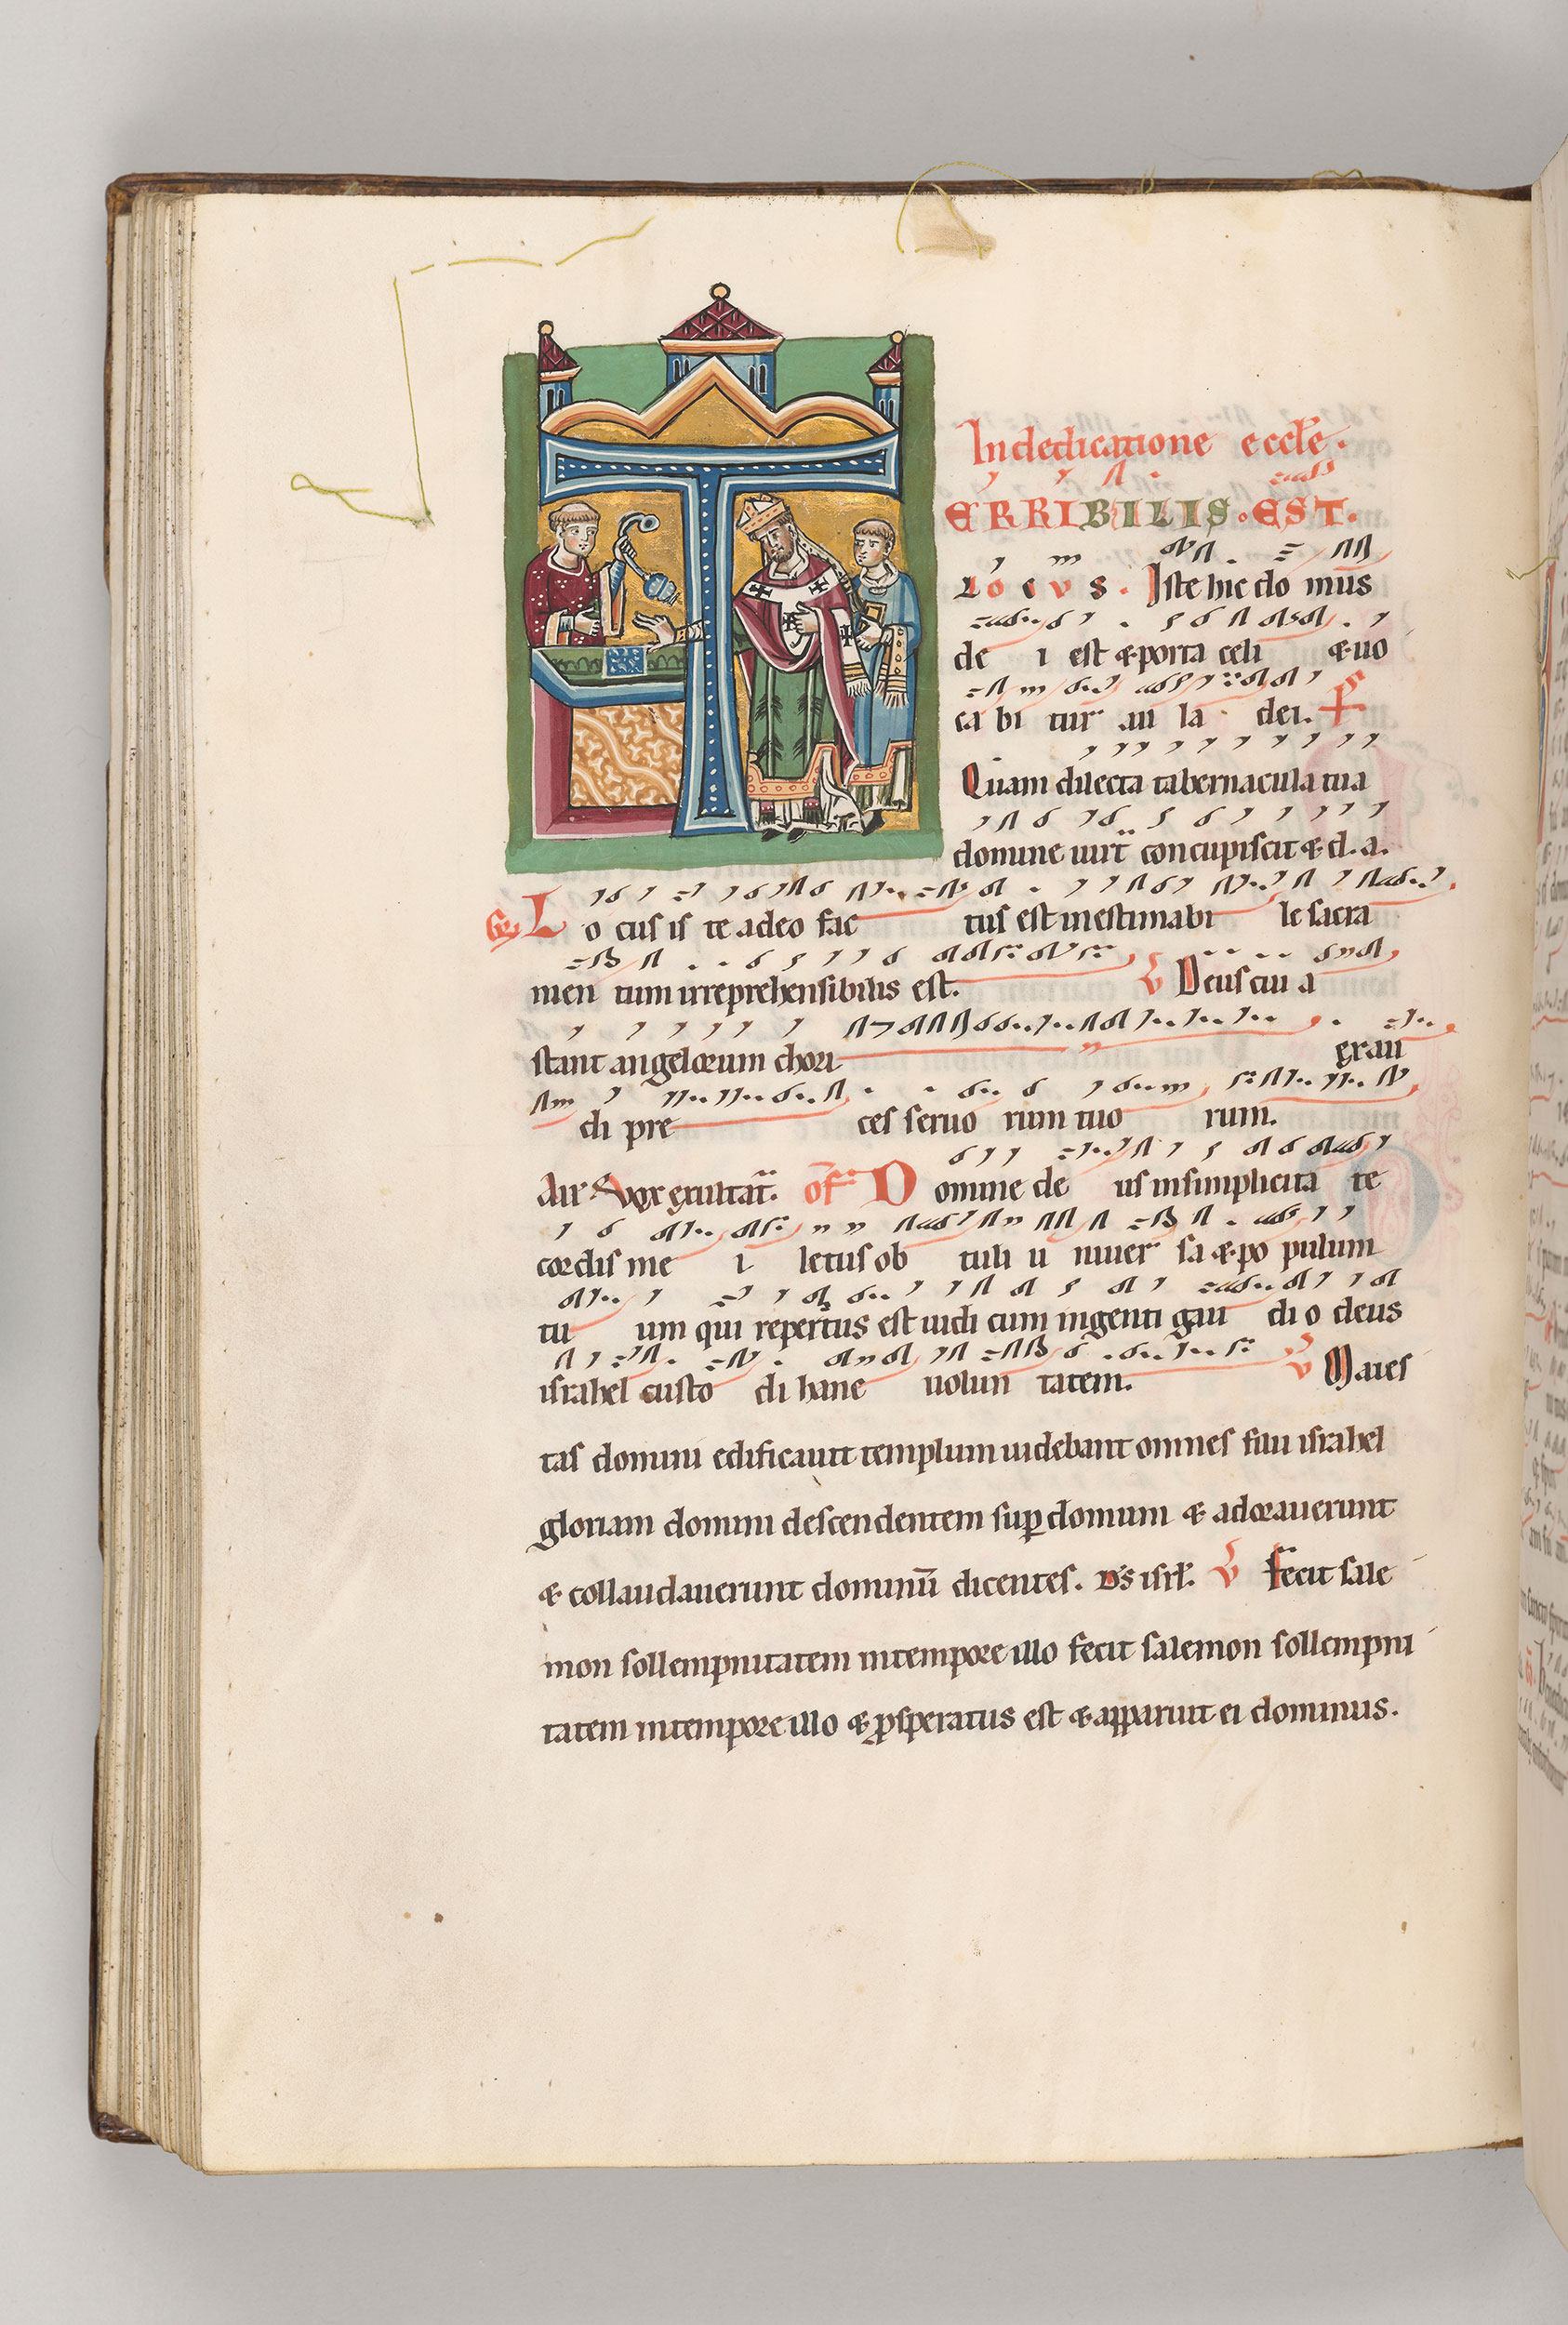 In dedicatione eccl̄e.
TERRIBILIS. EST.
LOCVS. Iste hic do mus
de i est & porta celi & uo
ca bi tur au la dei. Ps
Quam dilecta tabernacula tua
domine uirt̄ concupiscit & d. a.
Gr. L o cus is te a deo fac tus est inestimabi le sacra
men tum irreprehensibilis est. V Deus cui a
stant angelorum chori exau
di pre ces seruo rum tuo rum.
All'. Vox exultat̄. of D omine de us in simplicita te
cordis me i letus ob tuli u niuer sa & po pulum
tu um qui repertus est uidi cum ingenti gau di o deus
israhel custo di hanc uolun tatem. V Maies
tas domini edificauit templum uidebant omnes filii israhel
gloriam domini descendentem sup domum & adorauerunt
& collaudauerunt dominū dicentes. D̄s isrl̄. V Fecit sale
mon sollempnitatem in tempore illo fecit salemon sollempni
tatem in tempore illo & ꝓsperatus est & apparuit ei dominus.